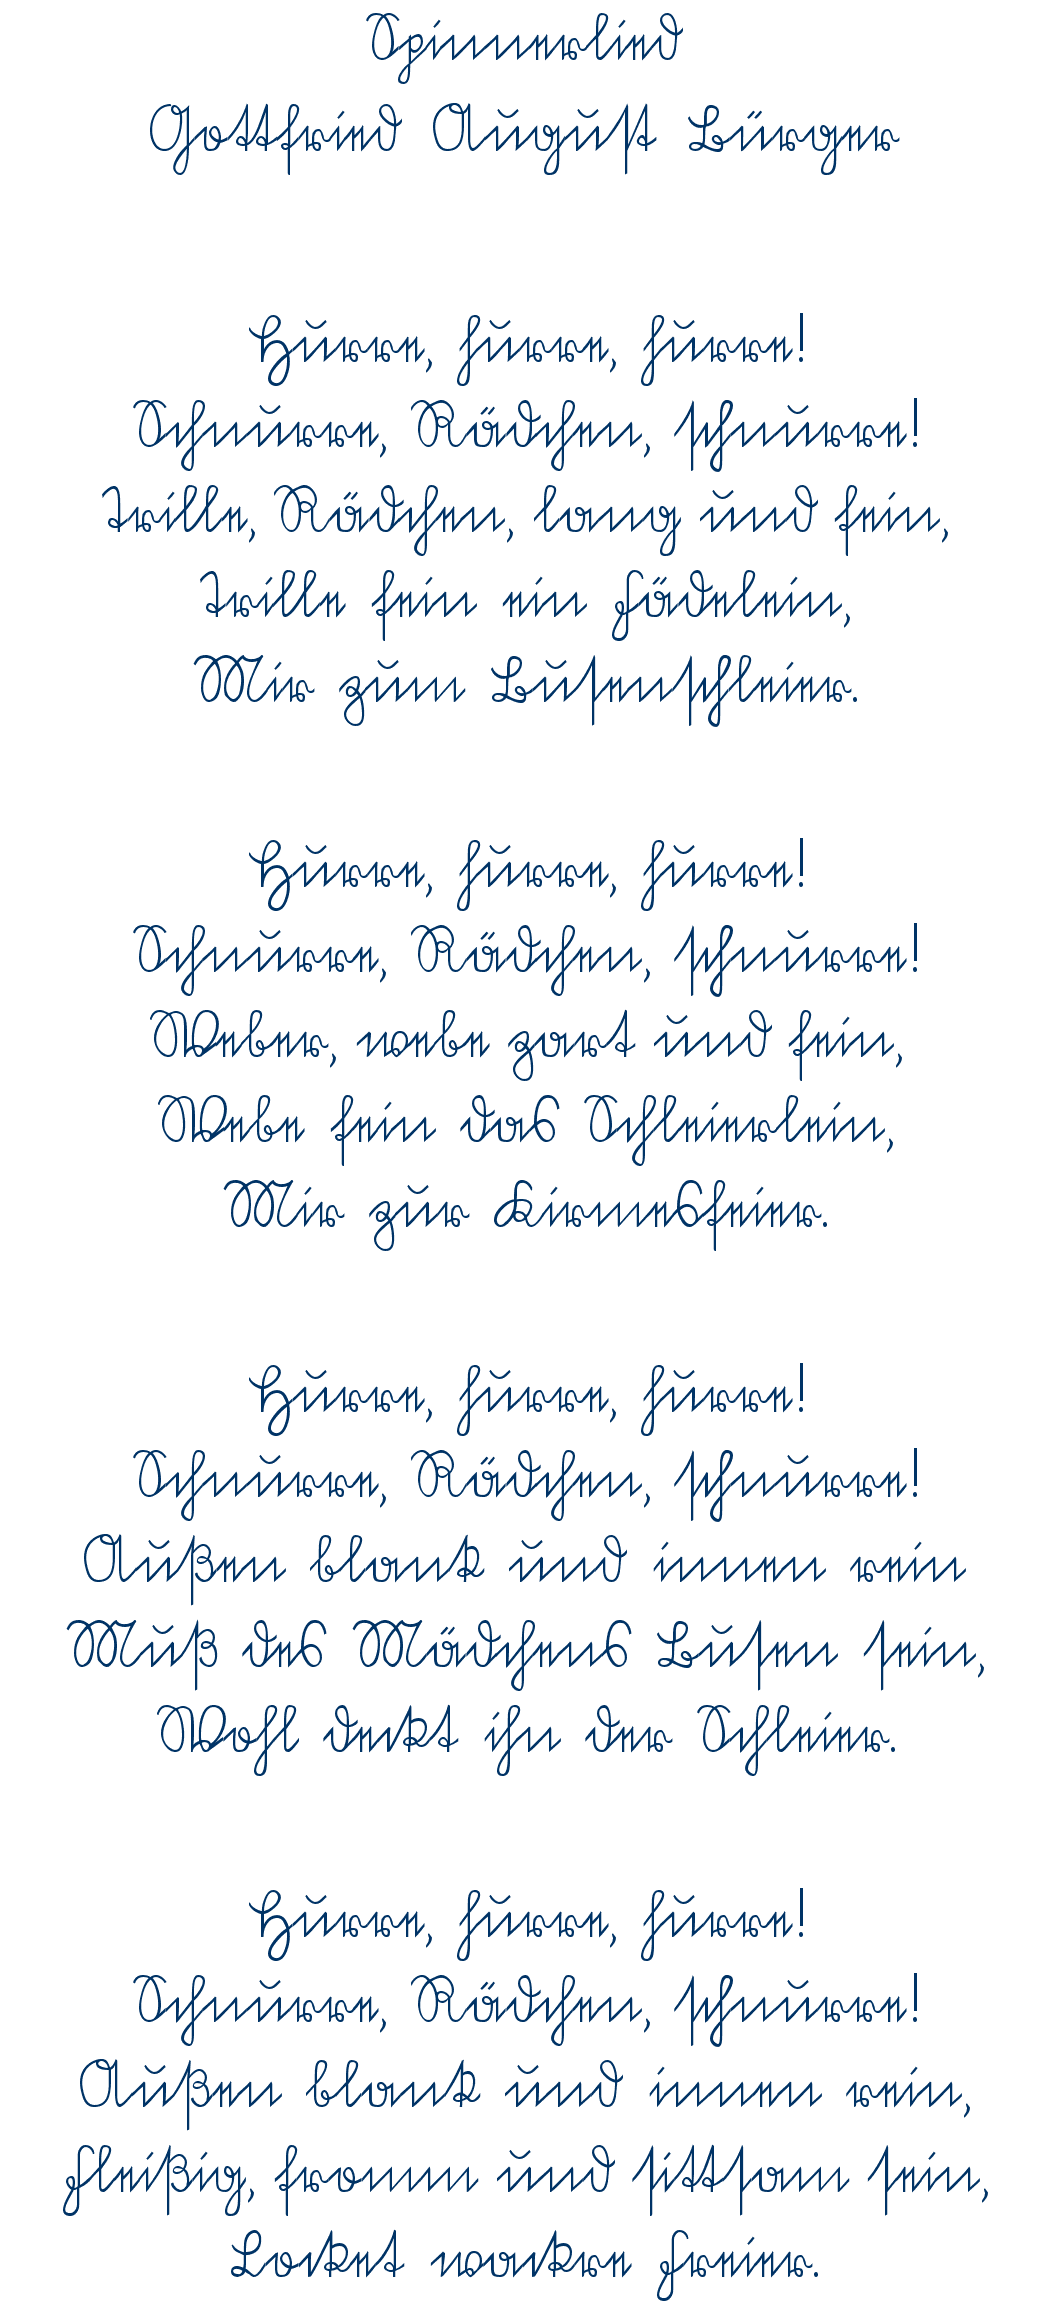 Spinnerlied
Gottfried August Bürger
Hurre, hurre, hurre!
Schnurre, Rädchen, schnurre!
Trille, Rädchen, lang und fein,
Trille fein ein Fädelein,
Mir zum Busenschleier.
Hurre, hurre, hurre!
Schnurre, Rädchen, schnurre!
Weber, webe zart und fein,
Webe fein das Schleierlein,
Mir zur Kirmesfeier.
Hurre, hurre, hurre!
Schnurre, Rädchen, schnurre!
Außen blank und innen rein
Muß des Mädchens Busen sein,
Wohl deckt ihn der Schleier.
Hurre, hurre, hurre!
Schnurre, Rädchen, schnurre!
Außen blank und innen rein,
Fleißig, fromm und sittsam sein,
Locket wackre Freier.